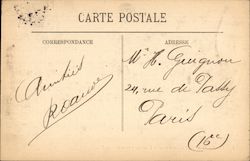 CARTE POSTALE
CORRESPONDANCE
ADRESSE
Amitiés
Mr H. Guignon
24, rue de Passy
Paris
(16e)